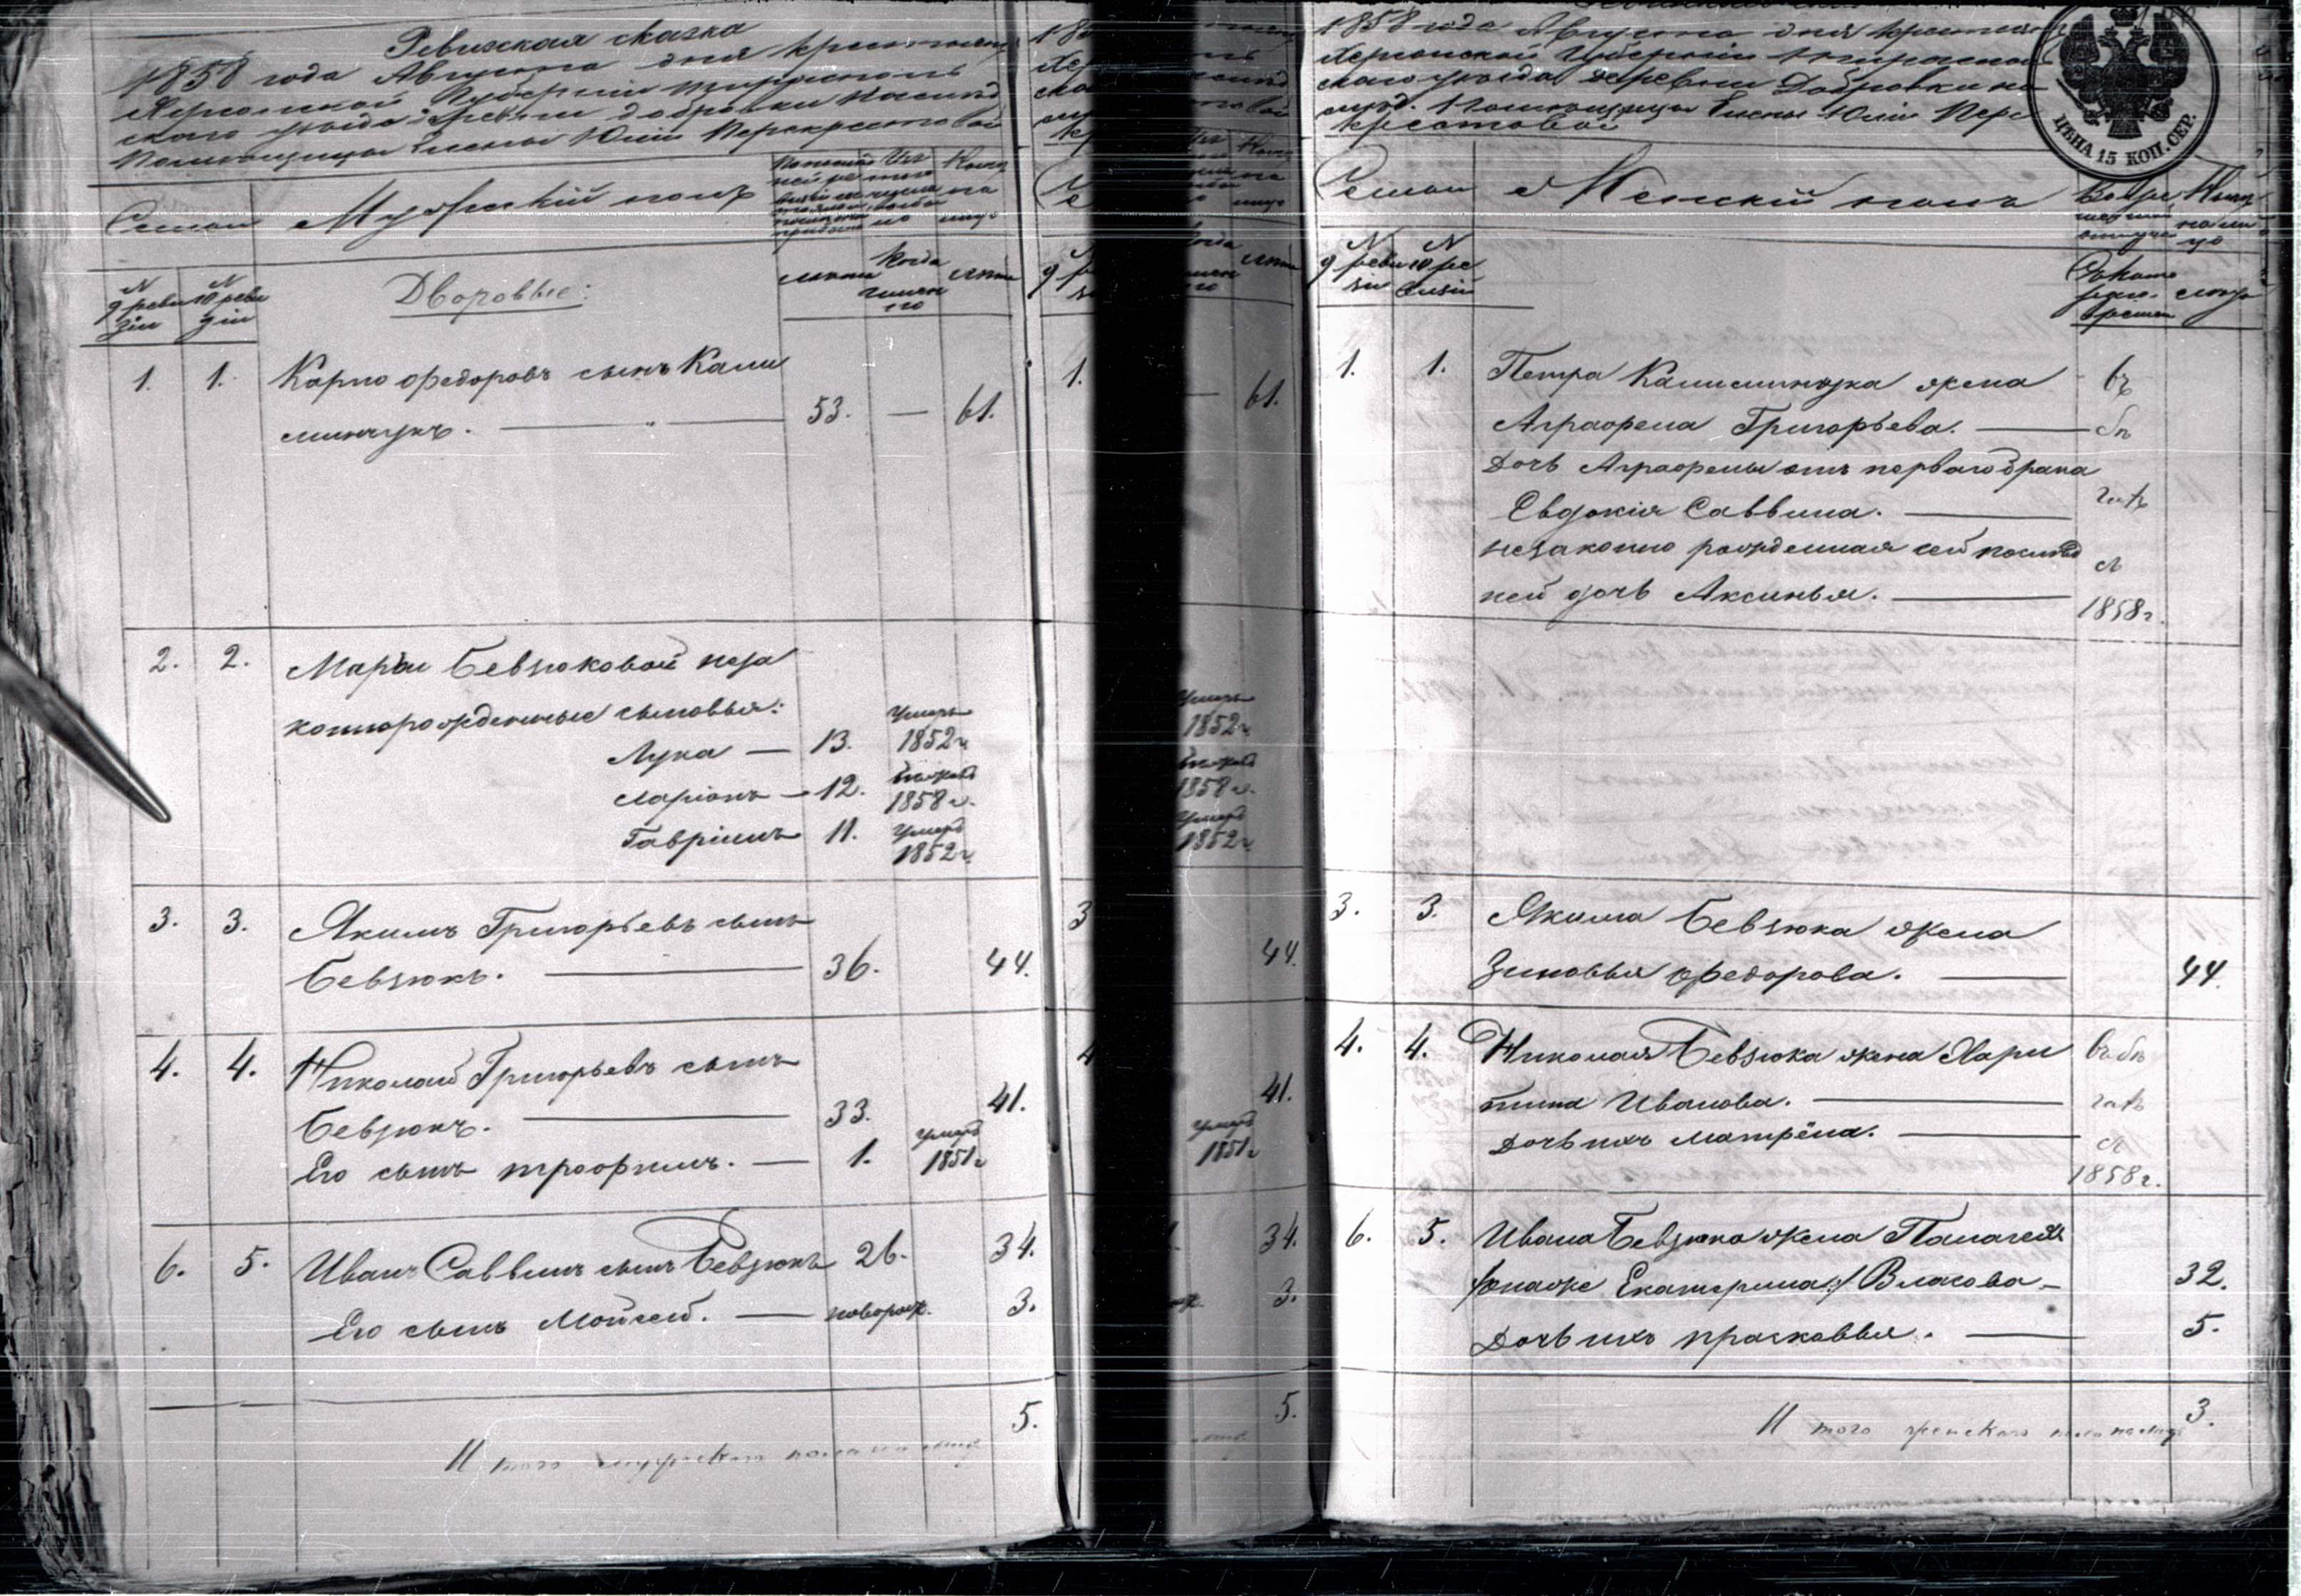 Ревизская сказка
1858 года Августа дня Херсонской
Губерніи Тирасполь
скаго уѣзда деревни Добровки
Помѣщицы Елены Юлій Перекрестовой
Семьи
Мужескій полъ
N 9 ревизіи
N 10 ревизіи
Дворовые:
лѣта
Когда
именно
лѣта
1. 1. Карпо Федоровъ сынъ Кали
минчукъ. 53. — 61.
2. 2. Маріи Бевзюковой неза
коннорожденные сыновья:
Лука — 13. умеръ 1852 г.
Ларіонъ — 12. 1858 г.
Гавріилъ 11. умеръ 1852 г.
3. 3. Якимъ Григорьевъ сынъ
Бевзюкъ. 36. 44.
4. 4. Николай Григорьевъ сынъ
Бевзюкъ. 33. 41.
Его сынъ Трофимъ. — 1. умеръ 1851 г.
6. 5. Иванъ Саввинъ сынъ Бевзюкъ 26. 34.
Его сынъ Мойсей. — новорож. 3.
5.
И того мужеска пола на лицо
1858 года Августа дня
Херсонской Губерніи Тирасполь
скаго уѣзда деревни Добровки
Помѣщицы Елены Юлій Пере
крестовой
ЦѢНА 15 КОП. СЕР.
Семьи
Женскій полъ
N 9 ревизіи
N 10 ревизіи
1. 1. Петра Калиминчука жена въ
Аграфена Григорьева. — бѣ
Дочь Аграфены отъ перваго брака
Евдокія Саввина. — гахъ
незаконно рожденная сей послѣд
ней дочь Аксинья. — съ 1858 г.
3. 3. Якима Бевзюка жена
Зиновья Федорова. — 44.
4. 4. Николая Бевзюка жена Хари въ бѣ
тина Иванова. — гахъ
Дочь ихъ Матрёна. — съ
1858 г.
6. 5. Ивана Бевзюка жена Палагея
/онаже Екатерина:/ Власова — 32.
Дочь ихъ Прасковья. — 5.
3.
И того женского пола на лицо